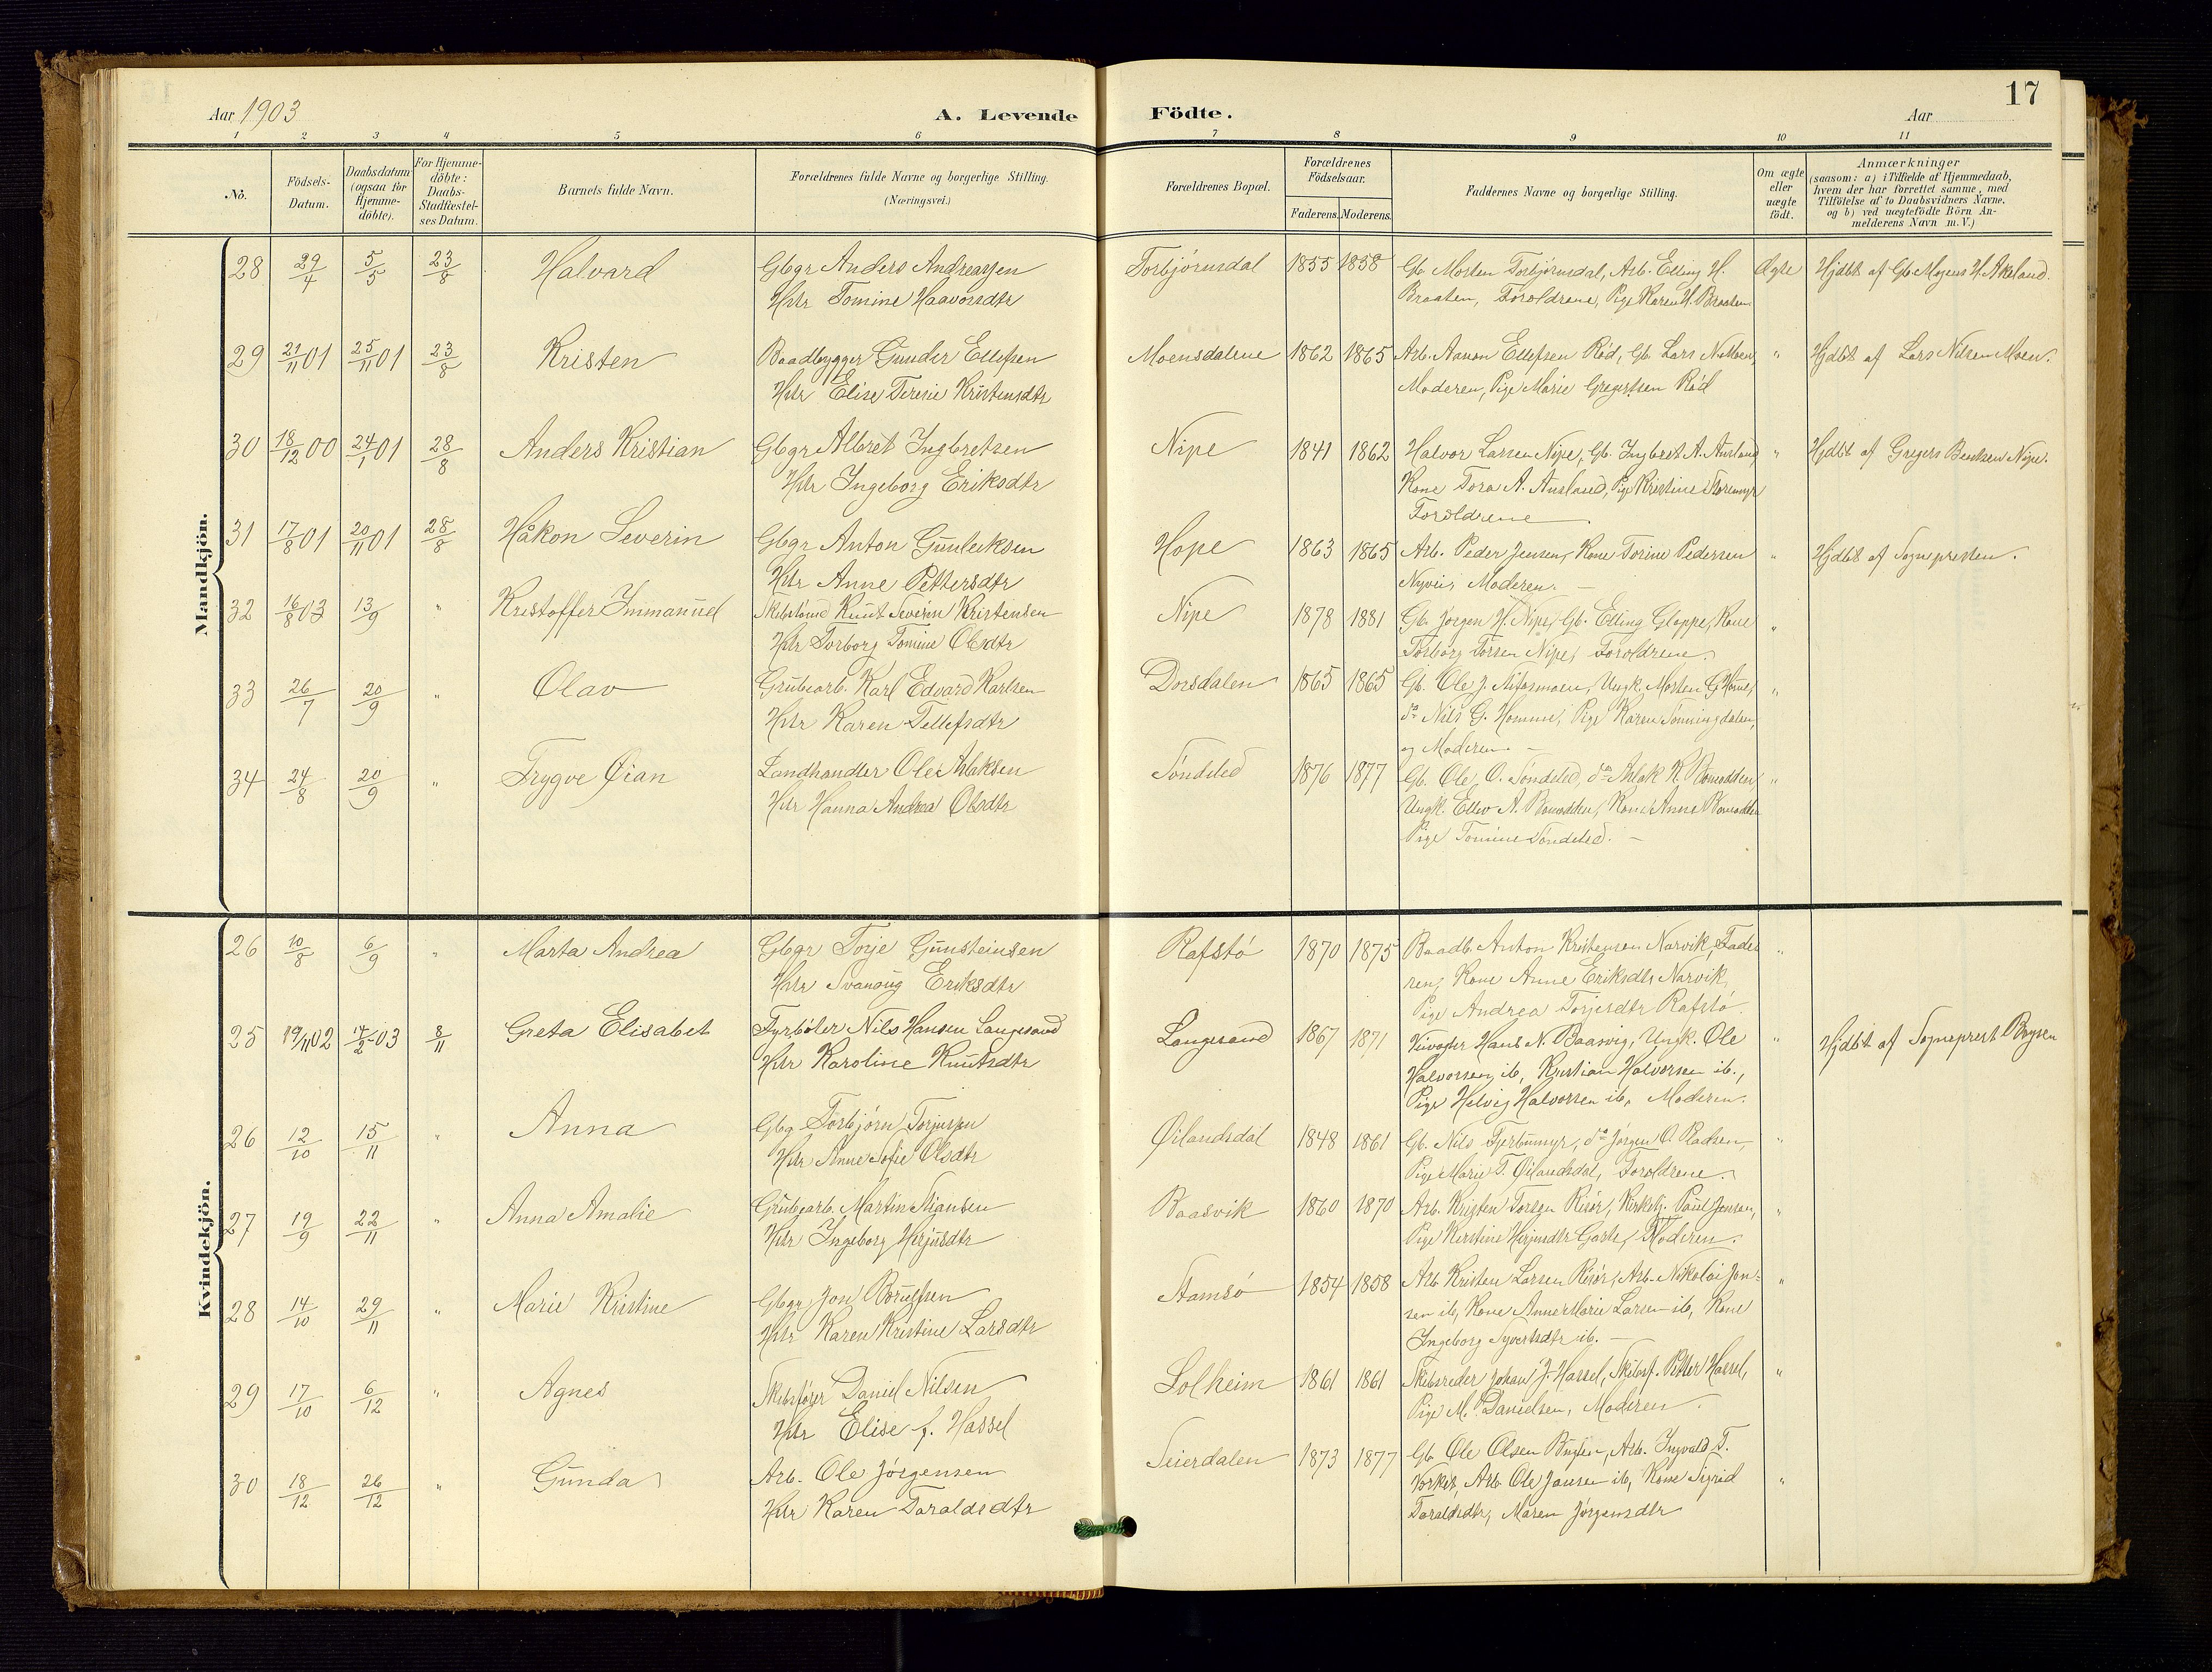 17
Aar 1903
A. Levende
Födte.
Aar
1 2 3 4 5 6 7 8 9 10 11
No.
Födsels-
Datum.
Daabsdatum
(ogsaa for
Hjemme-
döbte).
For Hjemme-
döbte:
Daabs-
Stadfæstel-
ses Datum.
Barnets fulde Navn.
Forældrenes fulde Navne og borgerlige Stilling.
(Næringsvei.)
Forældrenes Bopæl.
Forældrenes
Födselsaar.
Faderens. Moderens.
Faddernes Navne og borgerlige Stilling.
Om ægte
eller
uægte
födt.
Anmærkninger
(saasom: a) i Tilfælde af Hjemmedaab,
hvem der har forrettet samme, med
Tilföielse af to Daabsvidners Navne.
og b) ved uægtefödte Börn An-
melderens Navn m. V.)
Mandkjön.
28 29/4 5/5 23/8 Halvard Gbgr Anders Andreassen Torbjörnsdal 1855 1858 Gb. Morten Torbjörnsdal, Arb. Elling H. Ægte Hjdbt af Gb. Mogens H. Akeland.
Htr Tomine Haavorsdtr Braaten, Foroldrene, Pige Karen H. Braaten
29 21/11 01 25/11 01 23/8 Kristen Baadbygger Gunder Ellefsen Moensdalene 1862 1865 Arb. Aanon Ellefsen Röd, Gb. Lars N. Moen, " Hjdbt af Lars Nilsen Moen.
Htr Elise Teresie Kristensdtr Moderen, Pige Marie Gregertsen Röd
30 18/12 00 24/1 01 28/8 Anders Kristian Gbgr Albret Ingbretsen Nipe 1841 1862 Halvor Larsen Nipe, Gb. Ingbret A. Ausland " Hjdbt af Gregers Bentsen Nipe.
Htr Ingeborg Eriksdtr Kone Tora A. Ausland, Pige Kristine Storemyr
Foroldrene
31 17/8 01 20/11 01 28/8 Håkon Severin Gbgr Anton Gunleiksen Hope 1863 1865 Arb. Peder Jensen, Kone Torine Pedersen " Hjdbt af Sognepresten.
Htr Anne Pettersdtr Nyvei, Moderen. —
32 16/8 03 13/9 " Kristoffer Immanuel Skibstömd Knut Severin Kristensen Nipe 1878 1881 Gb. Jörgen H. Nipe, Gb. Elling Gloppe, Kone "
Htr Torborg Tomine Olsdtr Torborg Torsen Nipe, Foroldrene.
33 26/7 20/9 " Olav Grubearb. Karl Edvard Karlsen Dorsdalen 1865 1865 Gb. Ole J. Ungk. Morten G. "
Htr Karen Tellefsdtr do Nils G. Homme, Pige Karen Sönningdalen,
og Moderen. —
34 24/8 20/9 " Trygve Öian Landhandler Ole Aslaksen Söndeled 1876 1877 Gb. Ole O. Söndeled, do Aslak K. "
Htr Hanna Andrea Olsdtr Ungk. Ellev A. Kone Anne
Pige Tomine Söndeled. —
Kvindekjön.
26 10/8 6/9 " Marta Andrea Gbgr Torje Gunsteinsen Rafstö 1870 1875 Baadb. Anton Kristensen Narvik, Fade- "
Htr Svanoug Eriksdtr ren, Kone Anne Eriksdtr Narvik,
Pige Andrea Torjesdtr Rafstö.
25 19/11 02 14/2 03 8/11 Greta Elisabet Fyrböter Nils Hansen Langesand Langesand 1867 1871 Veivogter Hans N. Baasvig, Ungk. Ole " Hjdbt af Sogneprest Boysen
Htr Karoline Knutsdtr Halvorsen ib, Kristian Halvorsen ib.,
Pige Helvig Halvorsen ib, Moderen.
26 12/10 15/11 " Anna Gbg. Torbjörn Torjussen Öilandsdal 1848 1861 Gb. Nils do Jörgen O. Pladsen, "
Htr Anne Sofie Olsdtr Pige Marie T. Öilandsdal, Foroldrene.
27 19/9 22/11 " Anna Amalie Grubearb. Martin Stiansen Baasvik 1860 1870 Arb. Kristen Torsen Risör, Kirketj. Paul Jensen, "
Htr Ingeborg Herjusdtr Pige Kirstine Herjusdtr Garte, Moderen.
28 14/10 29/11 " Marie Kristine Gbgr Jon Börufsen Stamsö 1854 1858 Arb Kristen Larsen Risör, Arb. Nikolai Jon- "
Htr Karen Kristine Larsdtr sen ib, Kone Anne Marie Larsen ib, Kone
Ingeborg Syvertsdtr ib. —
29 17/10 6/12 " Agnes Skibsförer Daniel Nilsen Solheim 1861 1861 Skibsreder Johan J. Hassel, Skibsf. Petter Hassel, "
Htr Elise f. Hassel Pige M. Danielsen, Moderen.
30 18/12 26/12 " Gunda Arb. Ole Jörgensen Seierdalen 1873 1877 Gb. Ole Olsen Arb. Ingvald T. "
Htr Karen Taraldsdtr Arb Ole Jansen ib, Kone Sigrid
Taraldsdtr, Maren Jörgensdtr